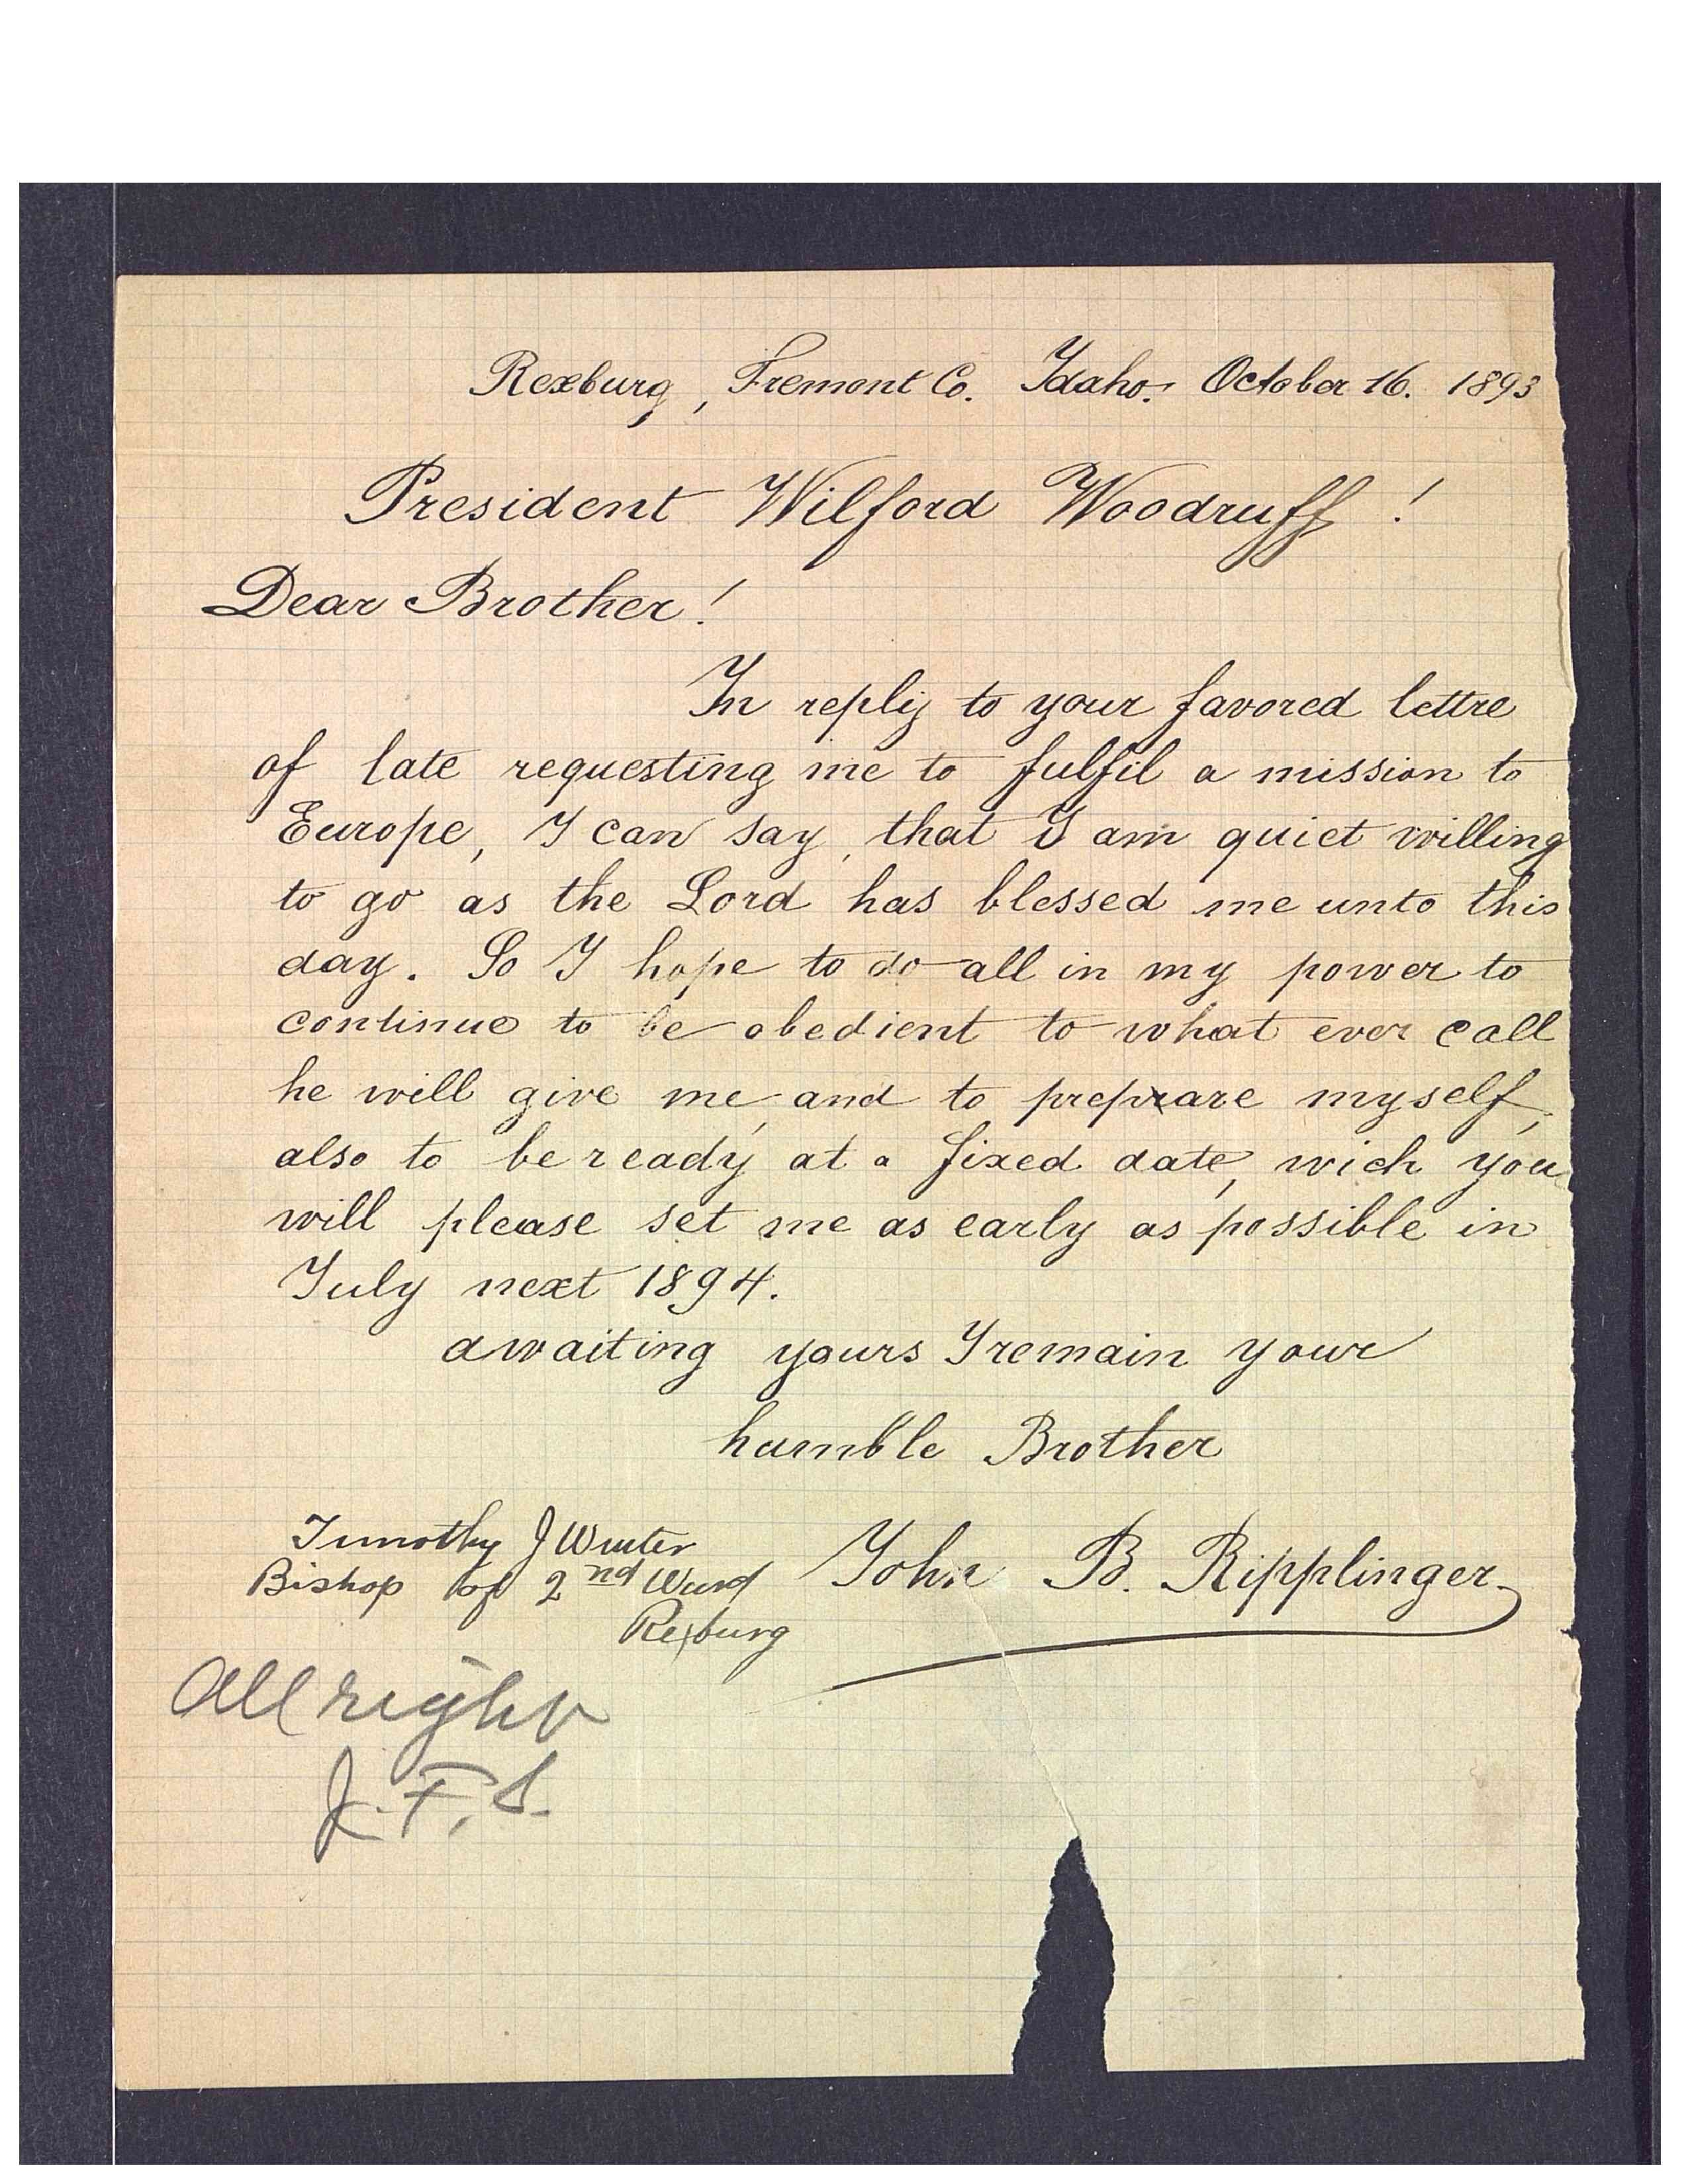 Rexburg, Fremont Co. Idaho. October 16. 1893
President Wilford Woodruff!
Dear Brother!
In reply to your favored lettre
of late requesting me to fulfil a mission to
Europe, I can say, that I am quiet willing
to go as the Lord has blessed me unto this
day. So I hope to do all in my power to
continue to be obedient to what ever call
he will give me, and to preprare myself,
also to be ready at a fixed date, wich you
will please set me as early as possible in
July next 1894.
awaiting yours I remain your
humble Brother
John B. Ripplinger
Timothy J Winter
Bishop of 2nd Ward
Rexburg
All right
J. F. S.